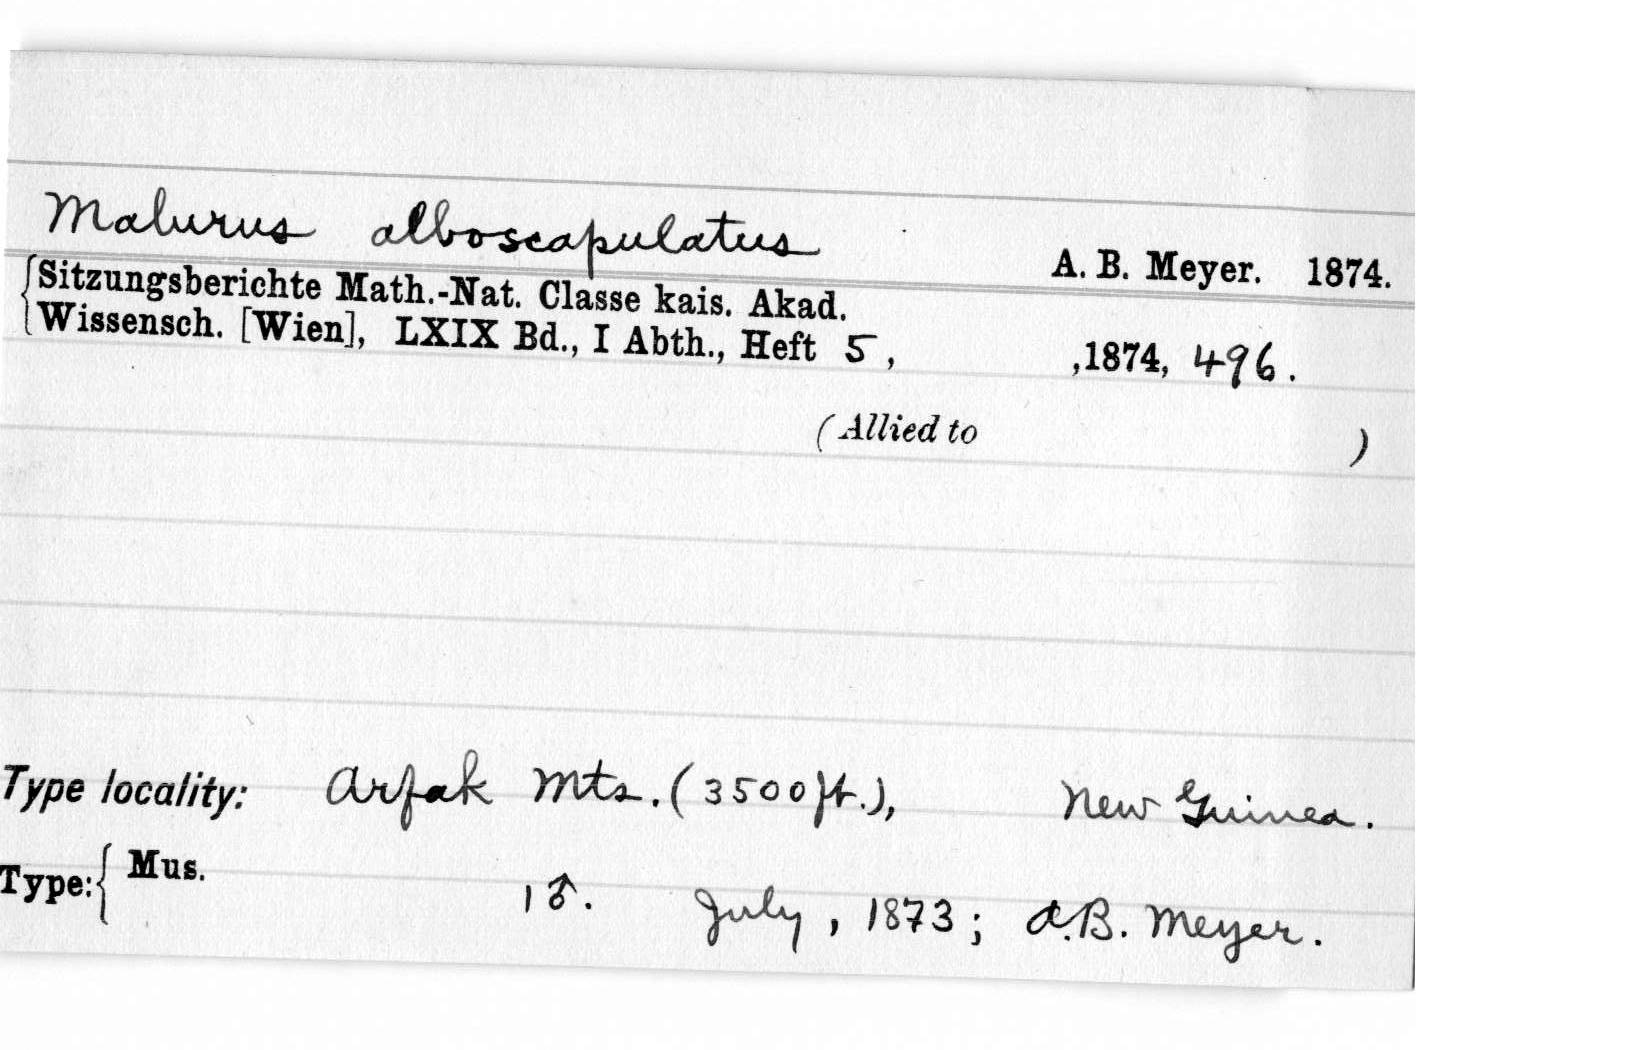 Malurus alboscapulatus A. B. Meyer. 1874.
Sitzungsberichte Math.-Nat. Classe kais. Akad.
Wissensch. [Wien], LXIX Bd., I Abth., Heft 5, ,1874, 496.
(Allied to )
Type locality: Arfak Mts. (3500 ft.), New Guinea.
Type: { Mus. 1 ♂. July, 1873; A.B. Meyer.